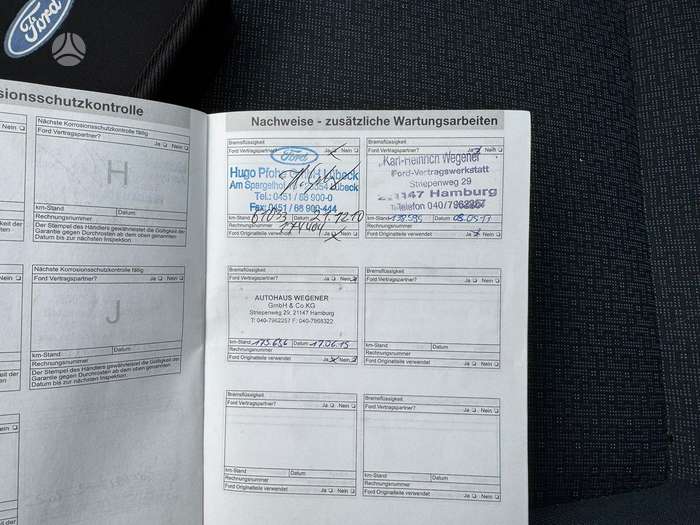 Ford
sionsschutzkontrolle
Nein
Nächste Korrosionsschutzkontrolle fällig
Ford Vertragspartner? Ja Nein
H
km-Stand Datum
Rechnungsnummer
Der Stempel des Händlers gewährleistet die Gültigkeit der
Garantie gegen Durchrosten ab dem oben genannten
Datum bis zur nächsten Inspektion.
Nächste Korrosionsschutzkontrolle fällig
Ford Vertragspartner? Ja Nein
J
km-Stand Datum
Rechnungsnummer
Der Stempel des Händlers gewährleistet die Gültigkeit der
Garantie gegen Durchrosten ab dem oben genannten
Datum bis zur nächsten Inspektion.
Nachweise - zusätzliche Wartungsarbeiten
Bremsflüssigkeit
Ford Vertragspartner? Ja Nein
Ford
Hugo
Am Spargelhof
Tel.: 0451 / 68 900-0
Fax: 0451 / 68 900-444
km-Stand Datum
Rechnungsnummer
Ford Originalteile verwendet Ja Nein
Bremsflüssigkeit
Ford Vertragspartner? Ja Nein
Karl-Heinrich Wegener
Ford-Vertragswerkstatt
Striepenweg 29
21147 Hamburg
Telefon 040/
km-Stand Datum 08.05.17
Rechnungsnummer
Ford Originalteile verwendet Ja Nein
Bremsflüssigkeit
Ford Vertragspartner? Ja Nein
AUTOHAUS WEGENER
GmbH & Co KG
Striepenweg 29, 21147 Hamburg
T: 040-7962257 F: 040-7968322
km-Stand 175.656 Datum
Rechnungsnummer
Ford Originalteile verwendet Ja Nein
Bremsflüssigkeit
Ford Vertragspartner? Ja Nein
km-Stand Datum
Rechnungsnummer
Ford Originalteile verwendet Ja Nein
Bremsflüssigkeit
Ford Vertragspartner? Ja Nein
km-Stand Datum
Rechnungsnummer
Ford Originalteile verwendet Ja Nein
Bremsflüssigkeit
Ford Vertragspartner? Ja Nein
km-Stand Datum
Rechnungsnummer
Ford Originalteile verwendet Ja Nein